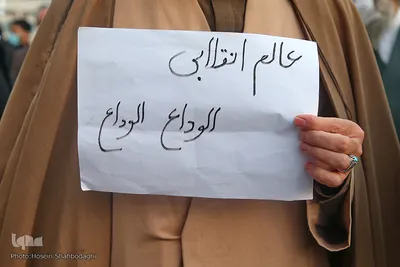 عالم انقلابی
الوداع الوداع
iqna
Photo:Hosein Shahbodaghi